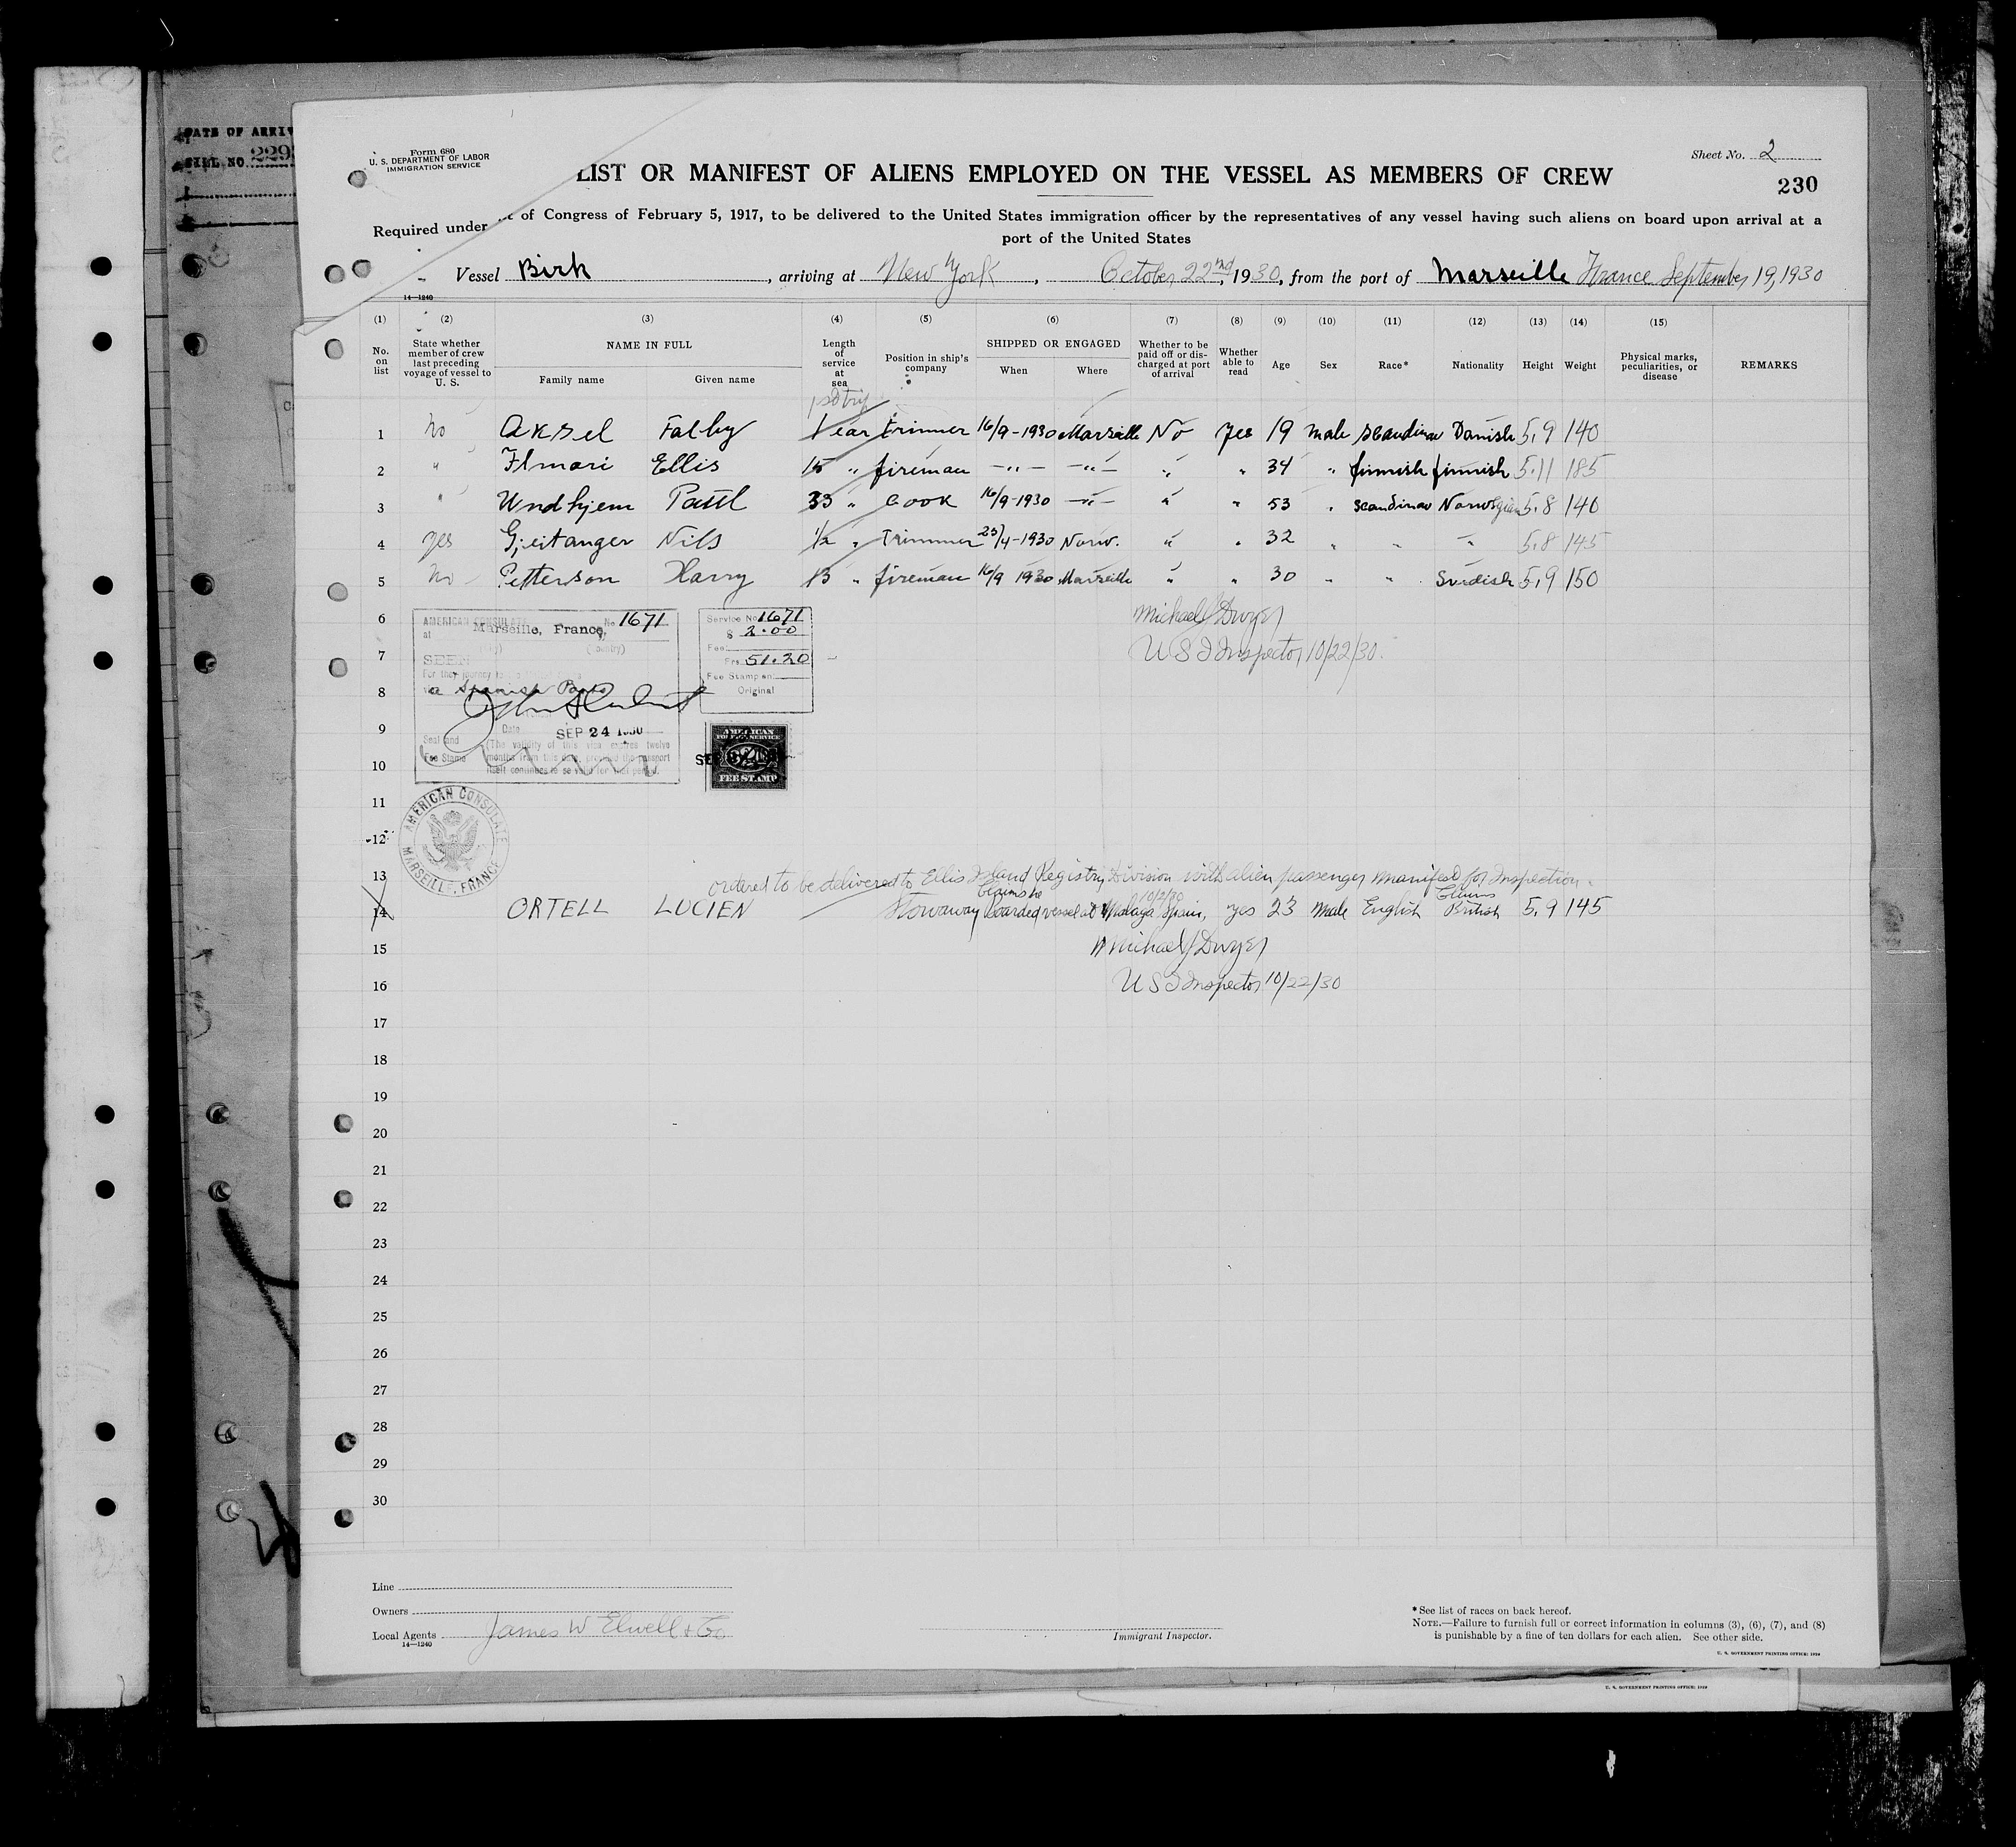 DATE OF ARRIV
BILL NO. 229
Form 680
U. S. DEPARTMENT OF LABOR
IMMIGRATION SERVICE
Sheet No. 2
LIST OR MANIFEST OF ALIENS EMPLOYED ON THE VESSEL AS MEMBERS OF CREW
230
Required under of Congress of February 5, 1917, to be delivered to the United States immigration officer by the representatives of any vessel having such aliens on board upon arrival at a
port of the United States
Vessel Birk, arriving at New York, October 22nd, 1930, from the port of Marseille France September 19, 1930
14—1240
(1) (2) (3) (4) (5) (6) (7) (8) (9) (10) (11) (12) (13) (14) (15)
No. on list State whether member of crew last preceding voyage of vessel to U. S. NAME IN FULL Family name Given name Length of service at sea Position in ship's company SHIPPED OR ENGAGED When Where Whether to be paid off or discharged at port of arrival Whether able to read Age Sex Race* Nationality Height Weight Physical marks, peculiarities, or disease REMARKS
1st trip
1 No Aksel Falby 1 ear trimmer 16/9-1930 Marseille No yes 19 male Scandinav Danish 5.9 140
2 " Ilmari Ellis 15 " fireman -"- -"- " " 34 " finnish finnish 5.11 185
3 " Undhjem Paul 33 " Cook 16/9-1930 -"- " " 53 " Scandinav Norwegian 5.8 140
4 yes Gjeitanger Nils 1/2 " Trimmer 25/4-1930 Norw. " " 32 " " " 5.8 145
5 No Petterson Harry 13 " fireman 16/9 1930 Marseille " " 30 " " Svedish 5.9 150
6 Michael J Dwyer
7 U S I Inspector 10/22/30.
8
9
10
AMERICAN CONSULATE No 1671
at Marseille, France,
(Country)
SEEN
For the journey to
via Spanish Ports
Date SEP 24 1930
Seal and Fee Stamp
(The validity of this visa expires twelve
months from this date, provided the passport
itself continues to be valid for that period.
Service No 1671
$ 2.00
Fee
Frs. 51.20
Fee Stamp on
Original
AMERICAN
FOREIGN SERVICE
FEE STAMP
11
12
AMERICAN CONSULATE
MARSEILLE, FRANCE
13 ordered to be delivered to Ellis Island Registry Division with alien passenger manifest for Inspection.
claims he 10/2/30 Claims
14 ORTELL LUCIEN Stowaway boarded vessel at Malaga Spain, yes 23 Male English British 5.9 145
15 Michael J Dwyer
16 U S I Inspector 10/22/30
17
18
19
20
21
22
23
24
25
26
27
28
29
30
Line
Owners
Local Agents James W Elwell & Co
14—1240
Immigrant Inspector.
*See list of races on back hereof.
NOTE.—Failure to furnish full or correct information in columns (3), (6), (7), and (8)
is punishable by a fine of ten dollars for each alien. See other side.
U. S. GOVERNMENT PRINTING OFFICE: 1929
U. S. GOVERNMENT PRINTING OFFICE: 1929